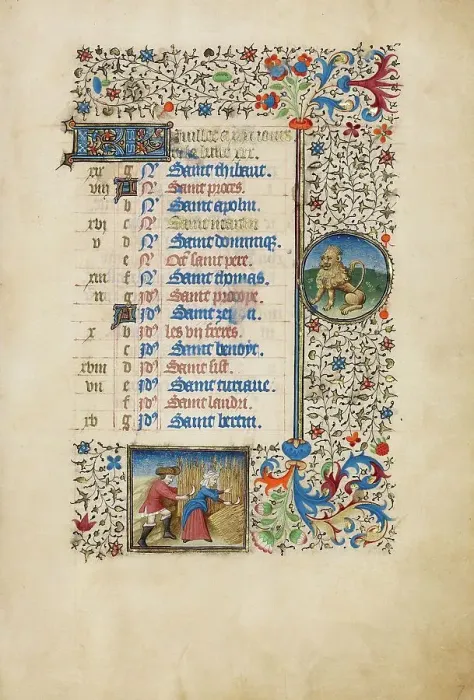 KL
xix g N Saint thibaut.
viii A N Saint proces.
b N Saint apolin.
xvi c N Saint martin
v d N Saint dominiq.
e N Oct saint pere.
xiii f N Saint thomas.
ii g Id Saint procope.
A Id Saint
x b Id les vii freres.
c Id Saint benoyt.
xviii d Id Saint
vii e Id Saint turiaue.
f Id Saint landri.
xv g Id Saint bertin.